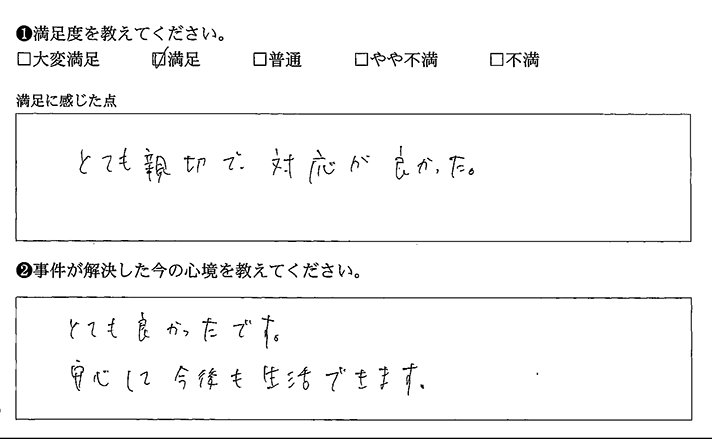 ❶満足度を教えてください。
□大変満足 ☑満足 □普通 □やや不満 □不満
満足に感じた点
とても親切で、対応が良かった。
❷事件が解決した今の心境を教えてください。
とても良かったです。
安心して今後も生活できます。